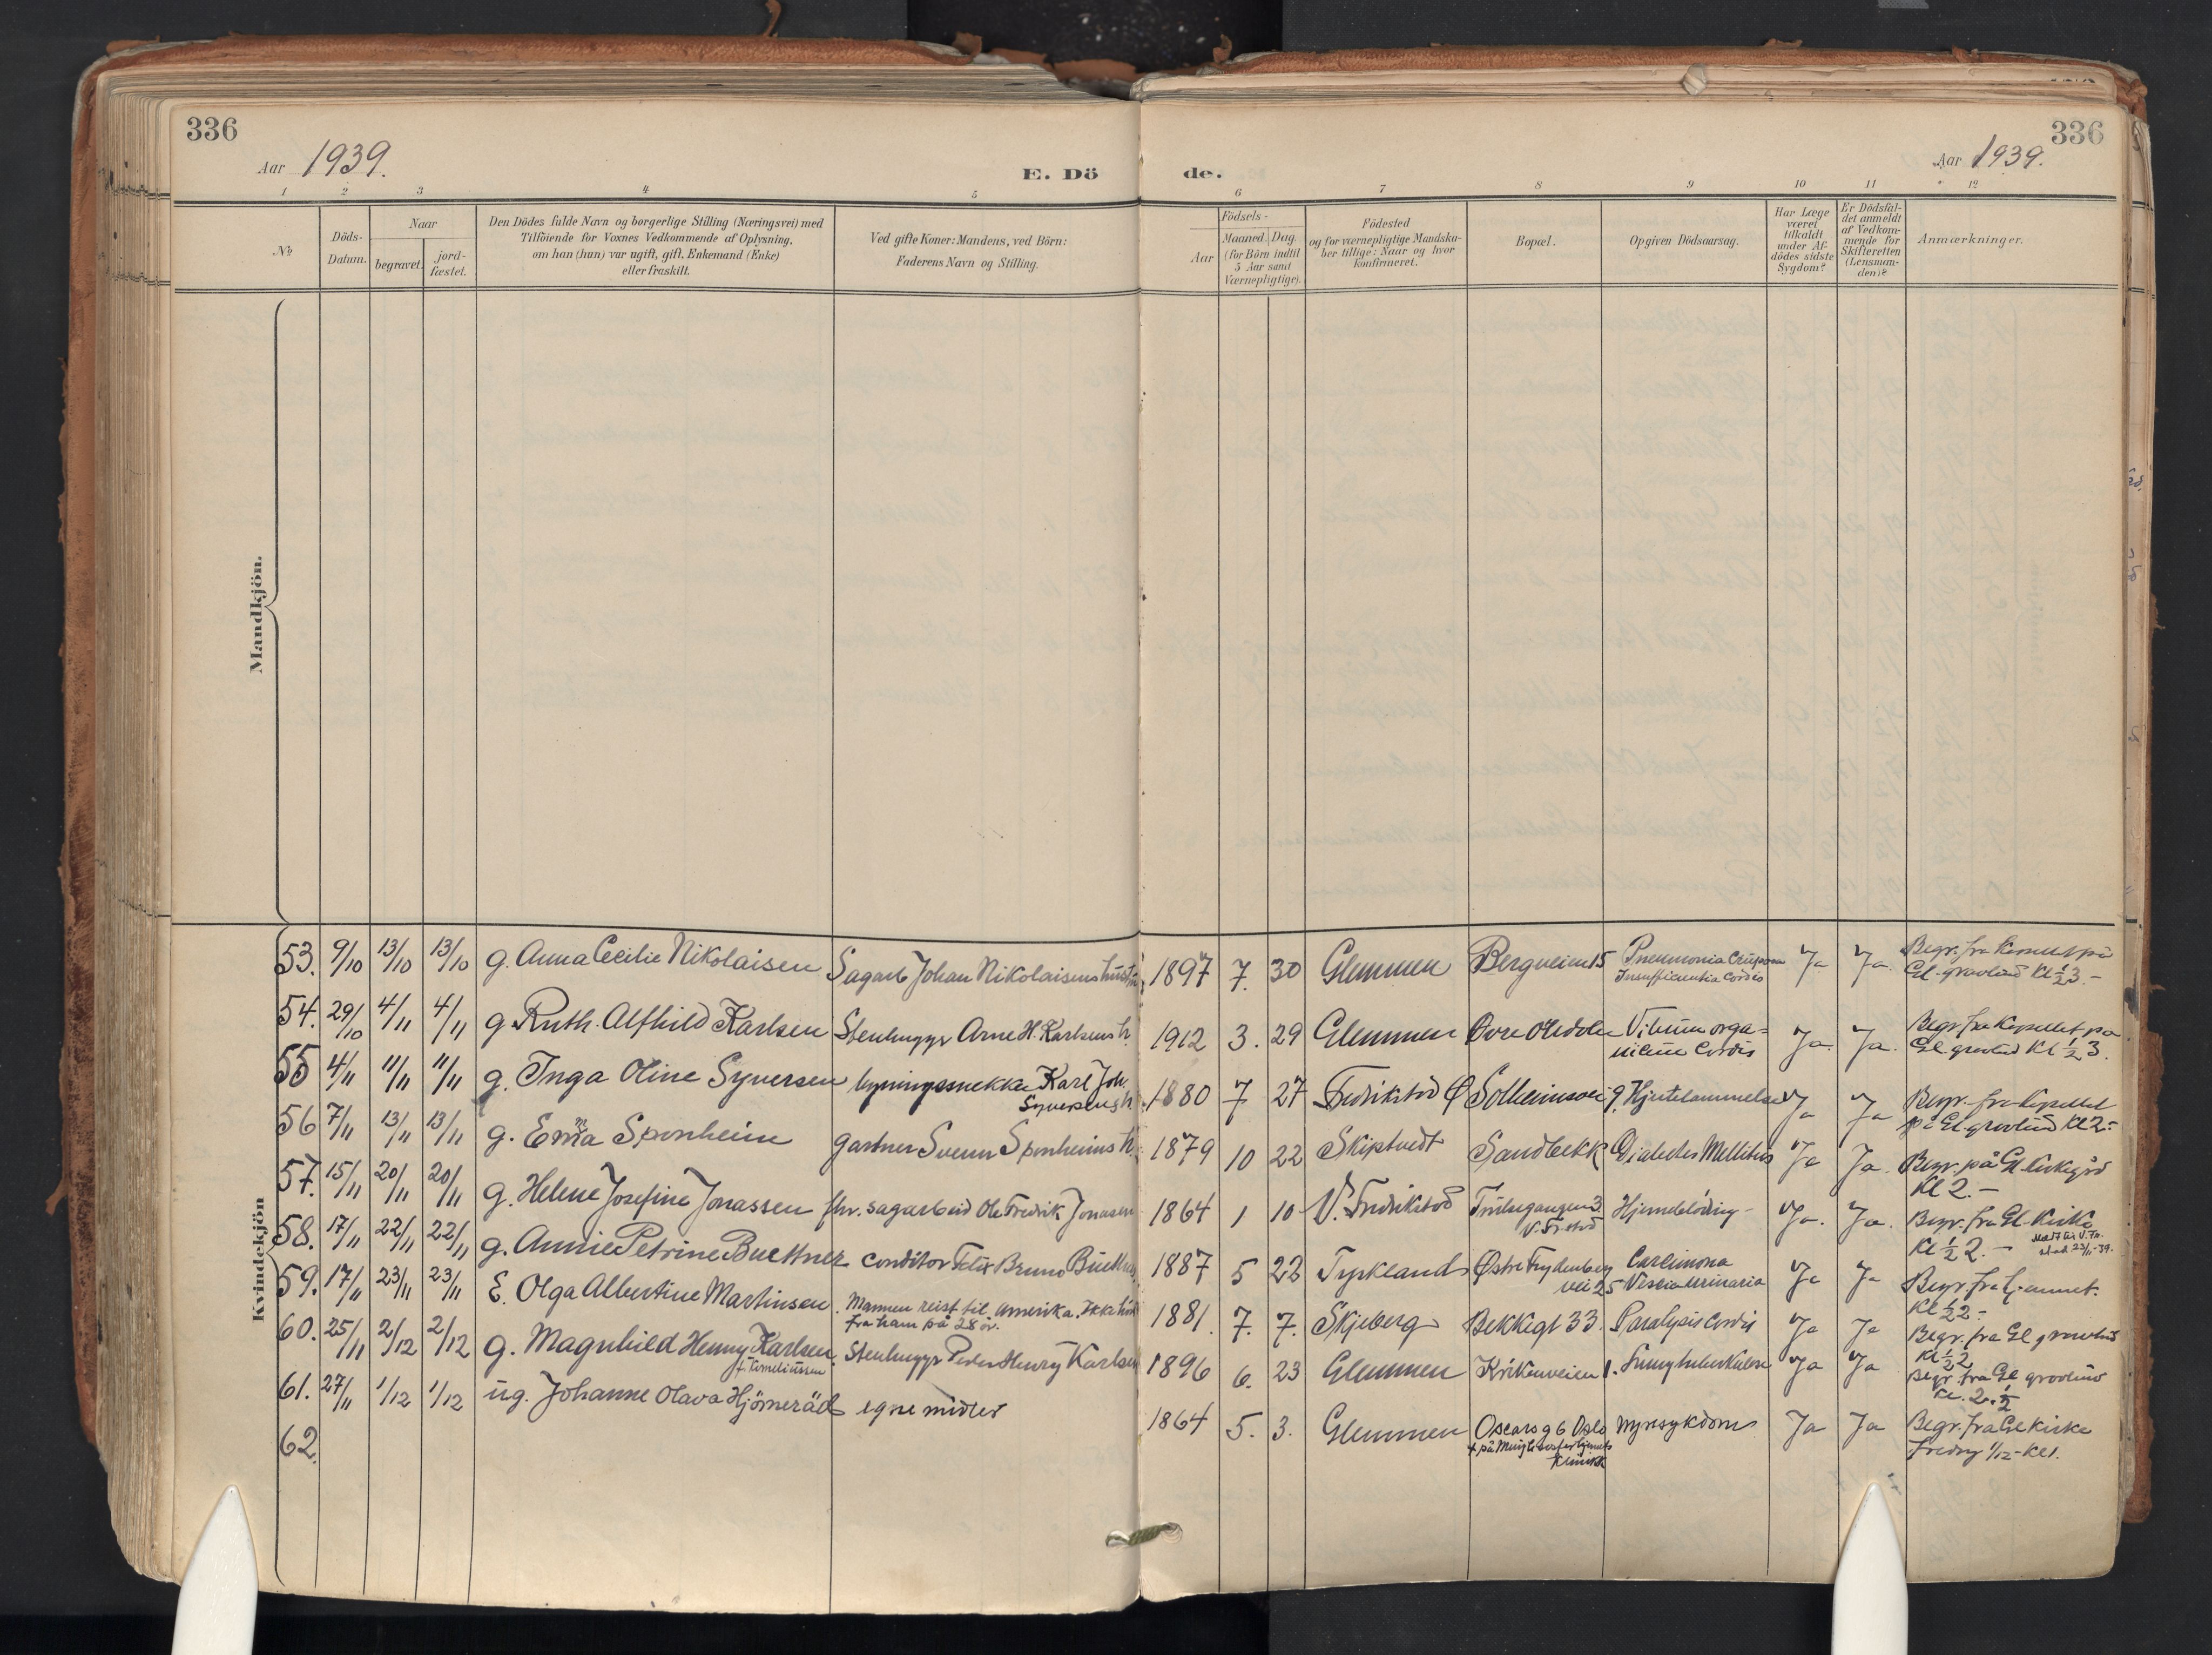 336
Aar 1939.
E. Dö
1 2 3 4 5
No.
Döds-Datum.
Naar
begravet.
jord-fæstet.
Den Dödes fulde Navn og borgerlige Stilling (Næringsvei) med
Tilföiende for Voxnes Vedkommende af Oplysning,
om han (hun) var ugift, gift, Enkemand (Enke)
eller fraskilt.
Ved gifte Koner: Mandens, ved Börn:
Faderens Navn og Stilling.
Mandkjön.
Kvindekjön
53. 9/10 13/10 13/10 g. Anna Cecilie Nikolaisen Sagarb Johan Nikolaisens
54. 29/10 4/11 4/11 g. Ruth Alfhild Karlsen Stenhugger Arne H. Karlsens h.
55 4/11 11/11 11/11 g. Inga Oline Syversen bygningssnekker Karl Joh.
Syversens h.
56 7/11 13/11 13/11 g. Emma Sponheim Gartner Svenn Sponheims h.
57. 15/11 20/11 20/11 g. Helene Josefine Jonassen fhv. sagarbeid Ole Fredrik Jonassen
58. 17/11 22/11 22/11 g. Annie Petrine Buettner Conditor Felix Bruno Büettner
59. 17/11 23/11 23/11 E. Olga Albertine Martinsen. Mannen reist til Amerika. Ikke hört
fra ham på 28 år.
60. 25/11 2/12 2/12 g. Magnhild Henny Karlsen Stenhugger Peder Henry Karlsen
f. Corneliussen
61. 27/11 1/12 1/12 ug. Johanne Olava Hjörneräd egne midler
62.
336
de.
Aar 1939.
6 7 8 9 10 11 12
Aar
Födsels-
Maaned. Dag.
(for Börn indtil
5 Aar samt
Værnepligtige).
Födested
og for værnepligtige Mandska-
ber tillige: Naar og hvor
konfirmeret.
Bopæl.
Opgiven Dödsaarsag.
Har Læge
været
tilkaldt
under Af-
dödes sidste
Sygdom?
Er Dödsfal-
det anmeldt
af Vedkom-
mende for
Skifteretten
(Lensman-
den)?
Anmærkninger.
1897 7. 30 Glemmen Bergveien 15 Pneumonia Crüposa Ja Ja. Begr. fra på
Insufficientia Cordis Gl. gravlund Kl 1/2 3.-
1912 3. 29 Glemmen Vitium orga- Ja. Ja. Begr fra Kapellet på
nicum Cordis Gl gravlund Kl 1/2 3.
1880 7 27 Fredrikstad Ø Solheimsvei 9. Hjertelammelse Ja Ja Begr. fra Kapellet
på Gl. gravlund Kl 2.-
1879 10 22 Skiptvedt Sandbekk Diabetes Mellitus Ja Ja. Begr. på Gl. kirkegård
Kl 2.-
1864 1 10 V. Fredrikstad V. Fr.stad Hjerneblödning- Ja. Ja. Begr. fra Gl. Kirke
Kl 1/2 2.- Meldt til V. Fr.
stad 23/11-39.
1887 5 22 Tyskland Østre Frydenberg Carcinoma Ja Ja Begr fra hjemmet.
vei 25 Vesica urinaria Kl 1/2 2.-
1881. 7. 7. Skjeberg Bekkegt 33. Paralysis Cordis Ja Ja Begr. fra Gl gravlund
Kl 1/2 2
1896 6. 23 Glemmen Kråkeveien 1. Lungtuberkulose Ja Ja Begr fra Gl gravlund
Kl. 2 1/2
1864 5. 3. Glemmen Oscarsg 6 Oslo Nyresykdom Ja Ja Begr. fra Gl Kirke
Klinikk Fredag 1/12-Kl 1.